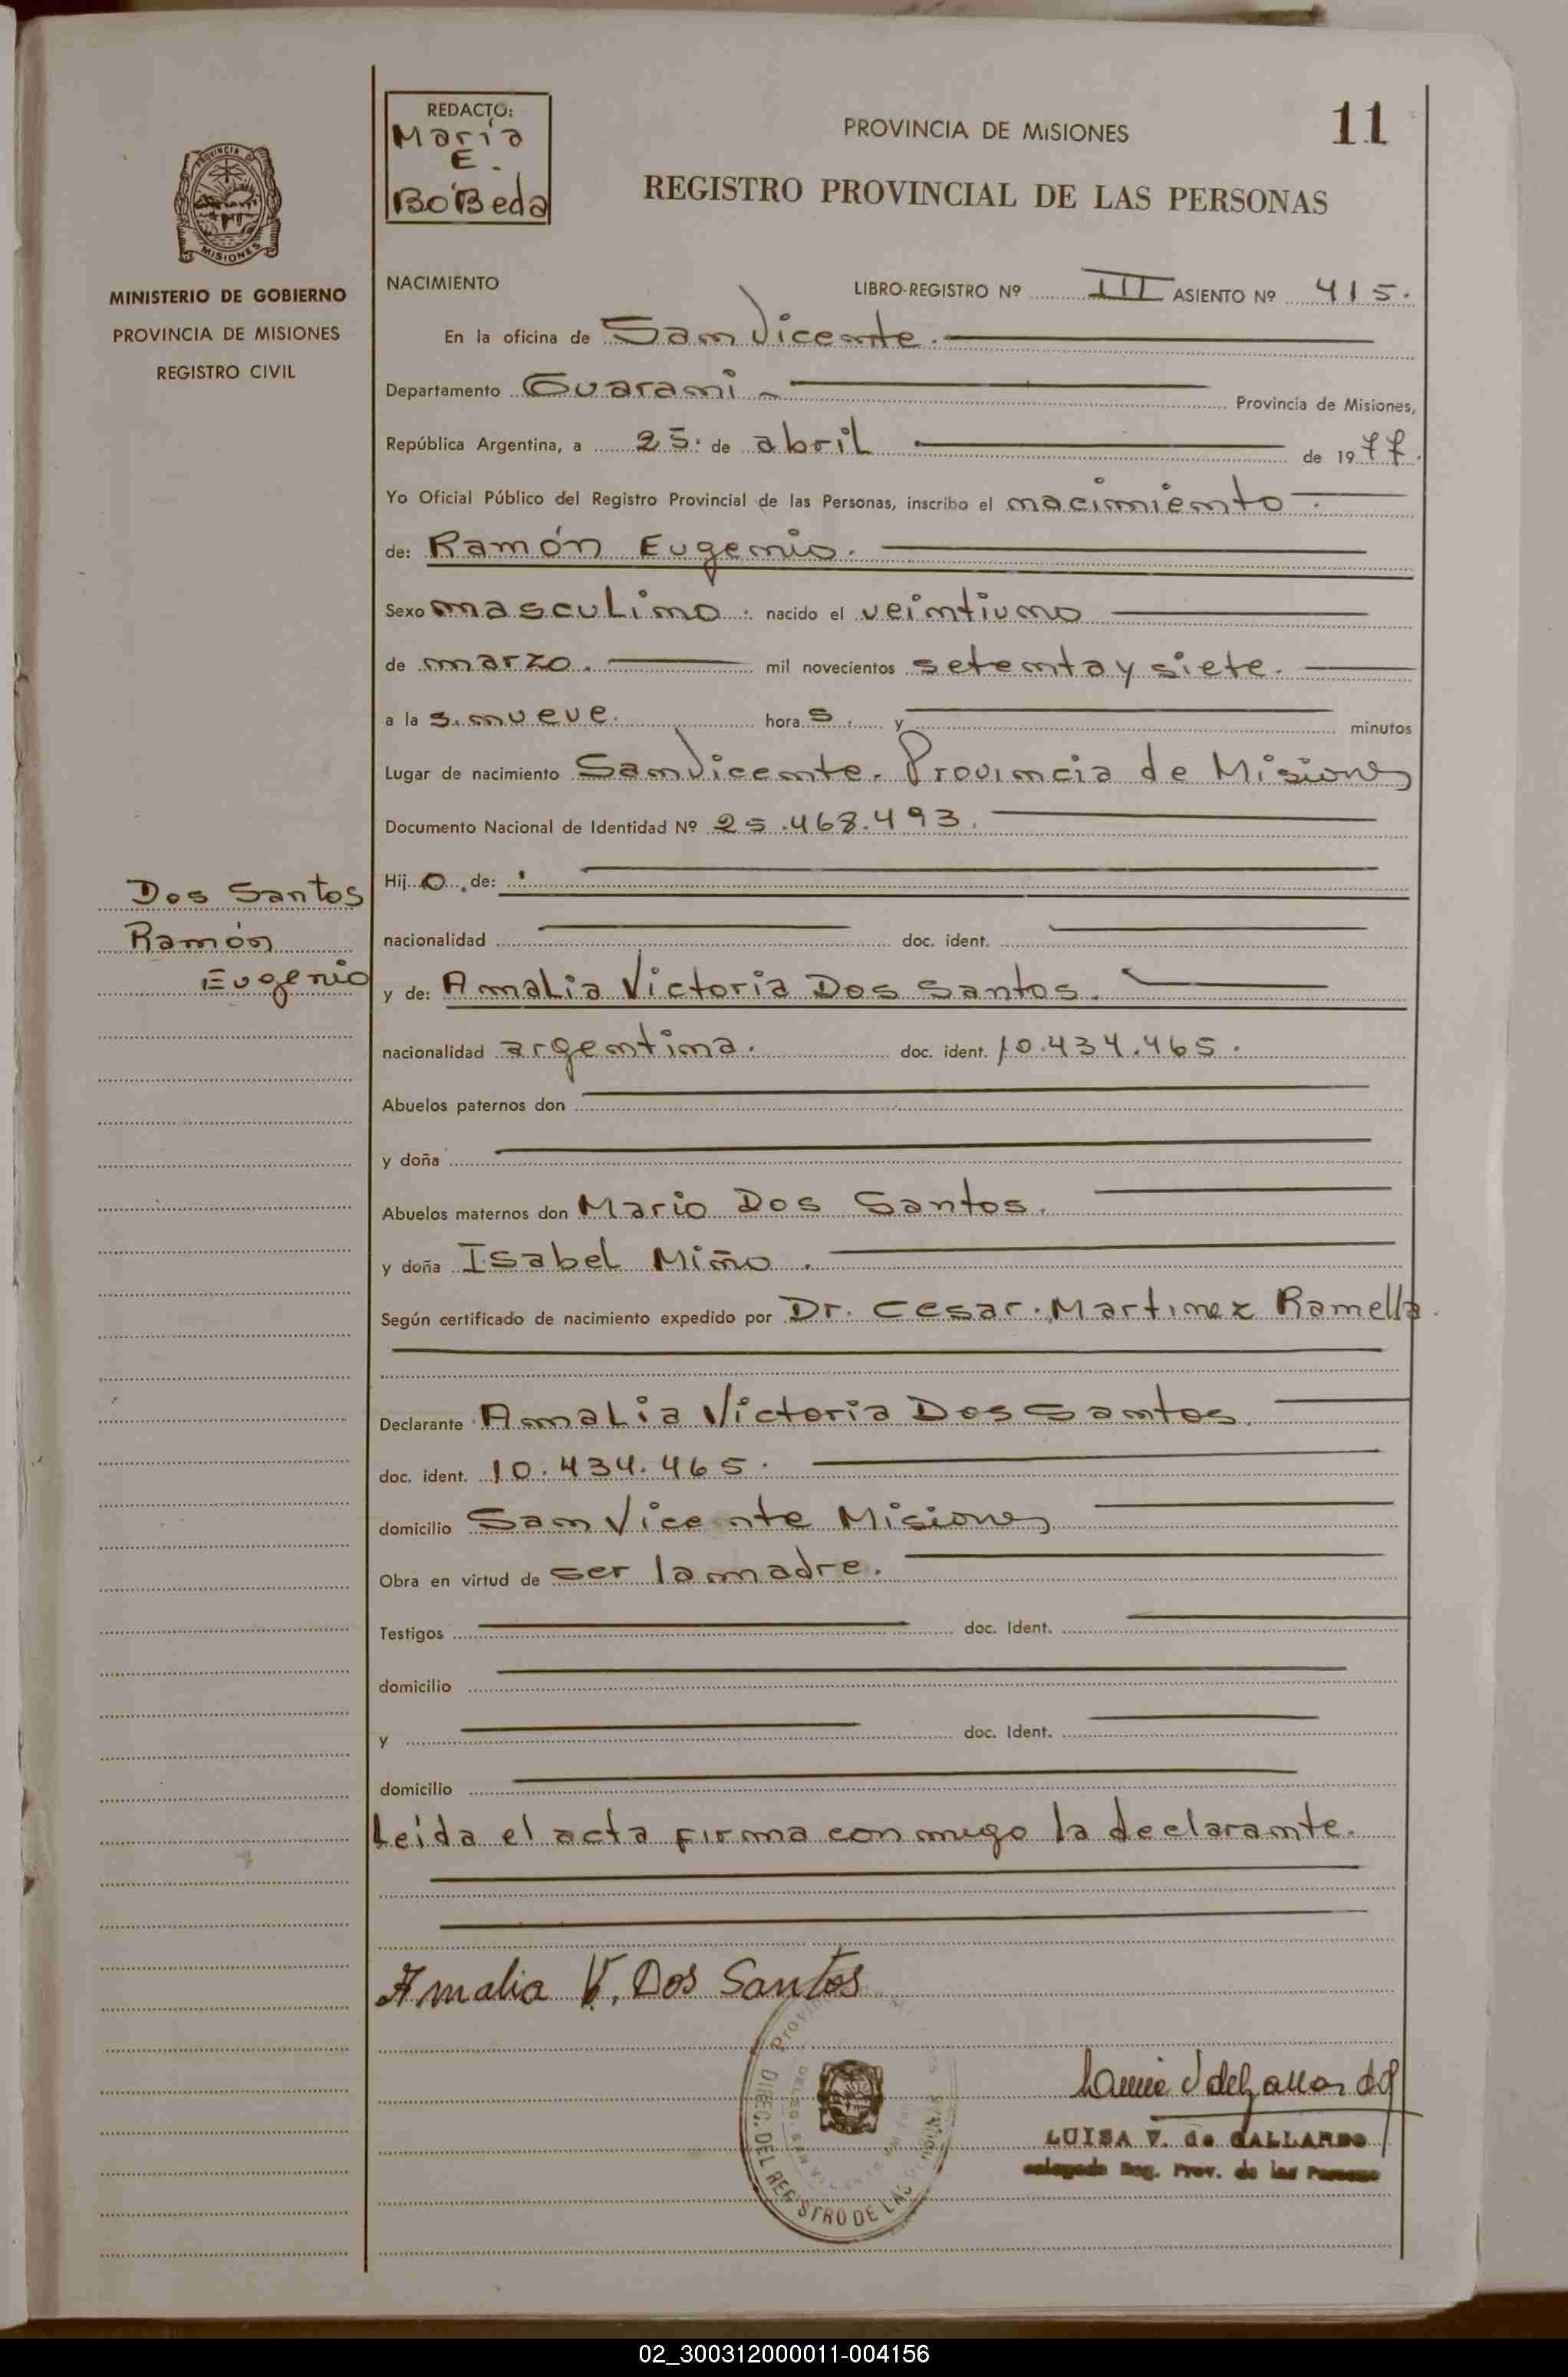 REDACTO:
María
E.
BóBeda
PROVINCIA DE MISIONES
11
REGISTRO PROVINCIAL DE LAS PERSONAS
PROVINCIA DE
MISIONES
MINISTERIO DE GOBIERNO
PROVINCIA DE MISIONES
REGISTRO CIVIL
NACIMIENTO LIBRO-REGISTRO Nº III ASIENTO Nº 415.
En la oficina de San Vicente.
Departamento Guarani - Provincia de Misiones,
República Argentina, a 25. de abril de 1977.
Yo Oficial Público del Registro Provincial de las Personas, inscribo el nacimiento.
de: Ramón Eugenio.
Sexo masculino. nacido el veintiuno
de marzo. mil novecientos setenta y siete.
a la s. nueve. hora s. y minutos
Lugar de nacimiento San Vicente. Provincia de Misiones
Documento Nacional de Identidad Nº 25.468.493.
Hij o. de:
nacionalidad doc. ident.
Dos Santos
Ramón
Eugenio
y de: Amalia Victoria Dos Santos.
nacionalidad argentina. doc. ident. 10.434.465.
Abuelos paternos don
y doña
Abuelos maternos don Mario Dos Santos.
y doña Isabel Miño.
Según certificado de nacimiento expedido por Dr. Cesar. Martinez Ramella.
Declarante Amalia Victoria Dos Santos.
doc. ident. 10.434.465.
domicilio San Vicente Misiones
Obra en virtud de ser la madre.
Testigos doc. Ident.
domicilio
y doc. Ident.
domicilio
Leida el acta firma conmigo la declarante.
Amalia V. Dos Santos
DIREC. DEL REGISTRO DE LAS
LUISA V. de GALLARDO
Reg. Prov. de las
02_300312000011-004156